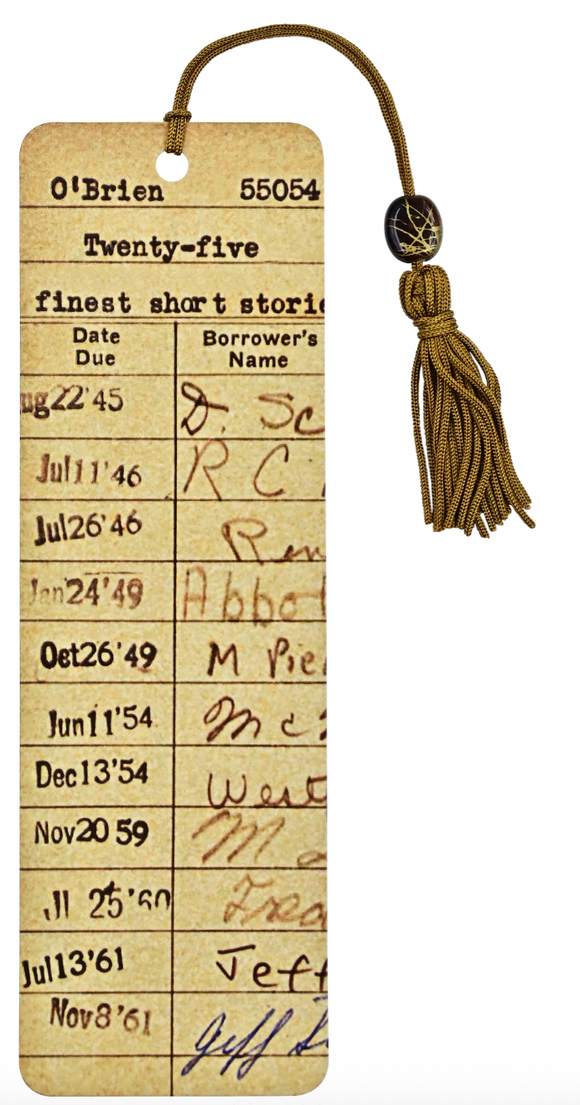 O'Brien 55054
Twenty-five
finest short storie
Date Due Borrower's Name
ug22'45 D. Sc
Jul11'46 R C
Jul26'46 Ren
Jan'24'49 Abbot
Oct26'49 M Pie
Jun11'54 Mc
Dec13'54 West
Nov20 59 M
25'60
Jul13'61 Jeff
Nov8'61 Jeff